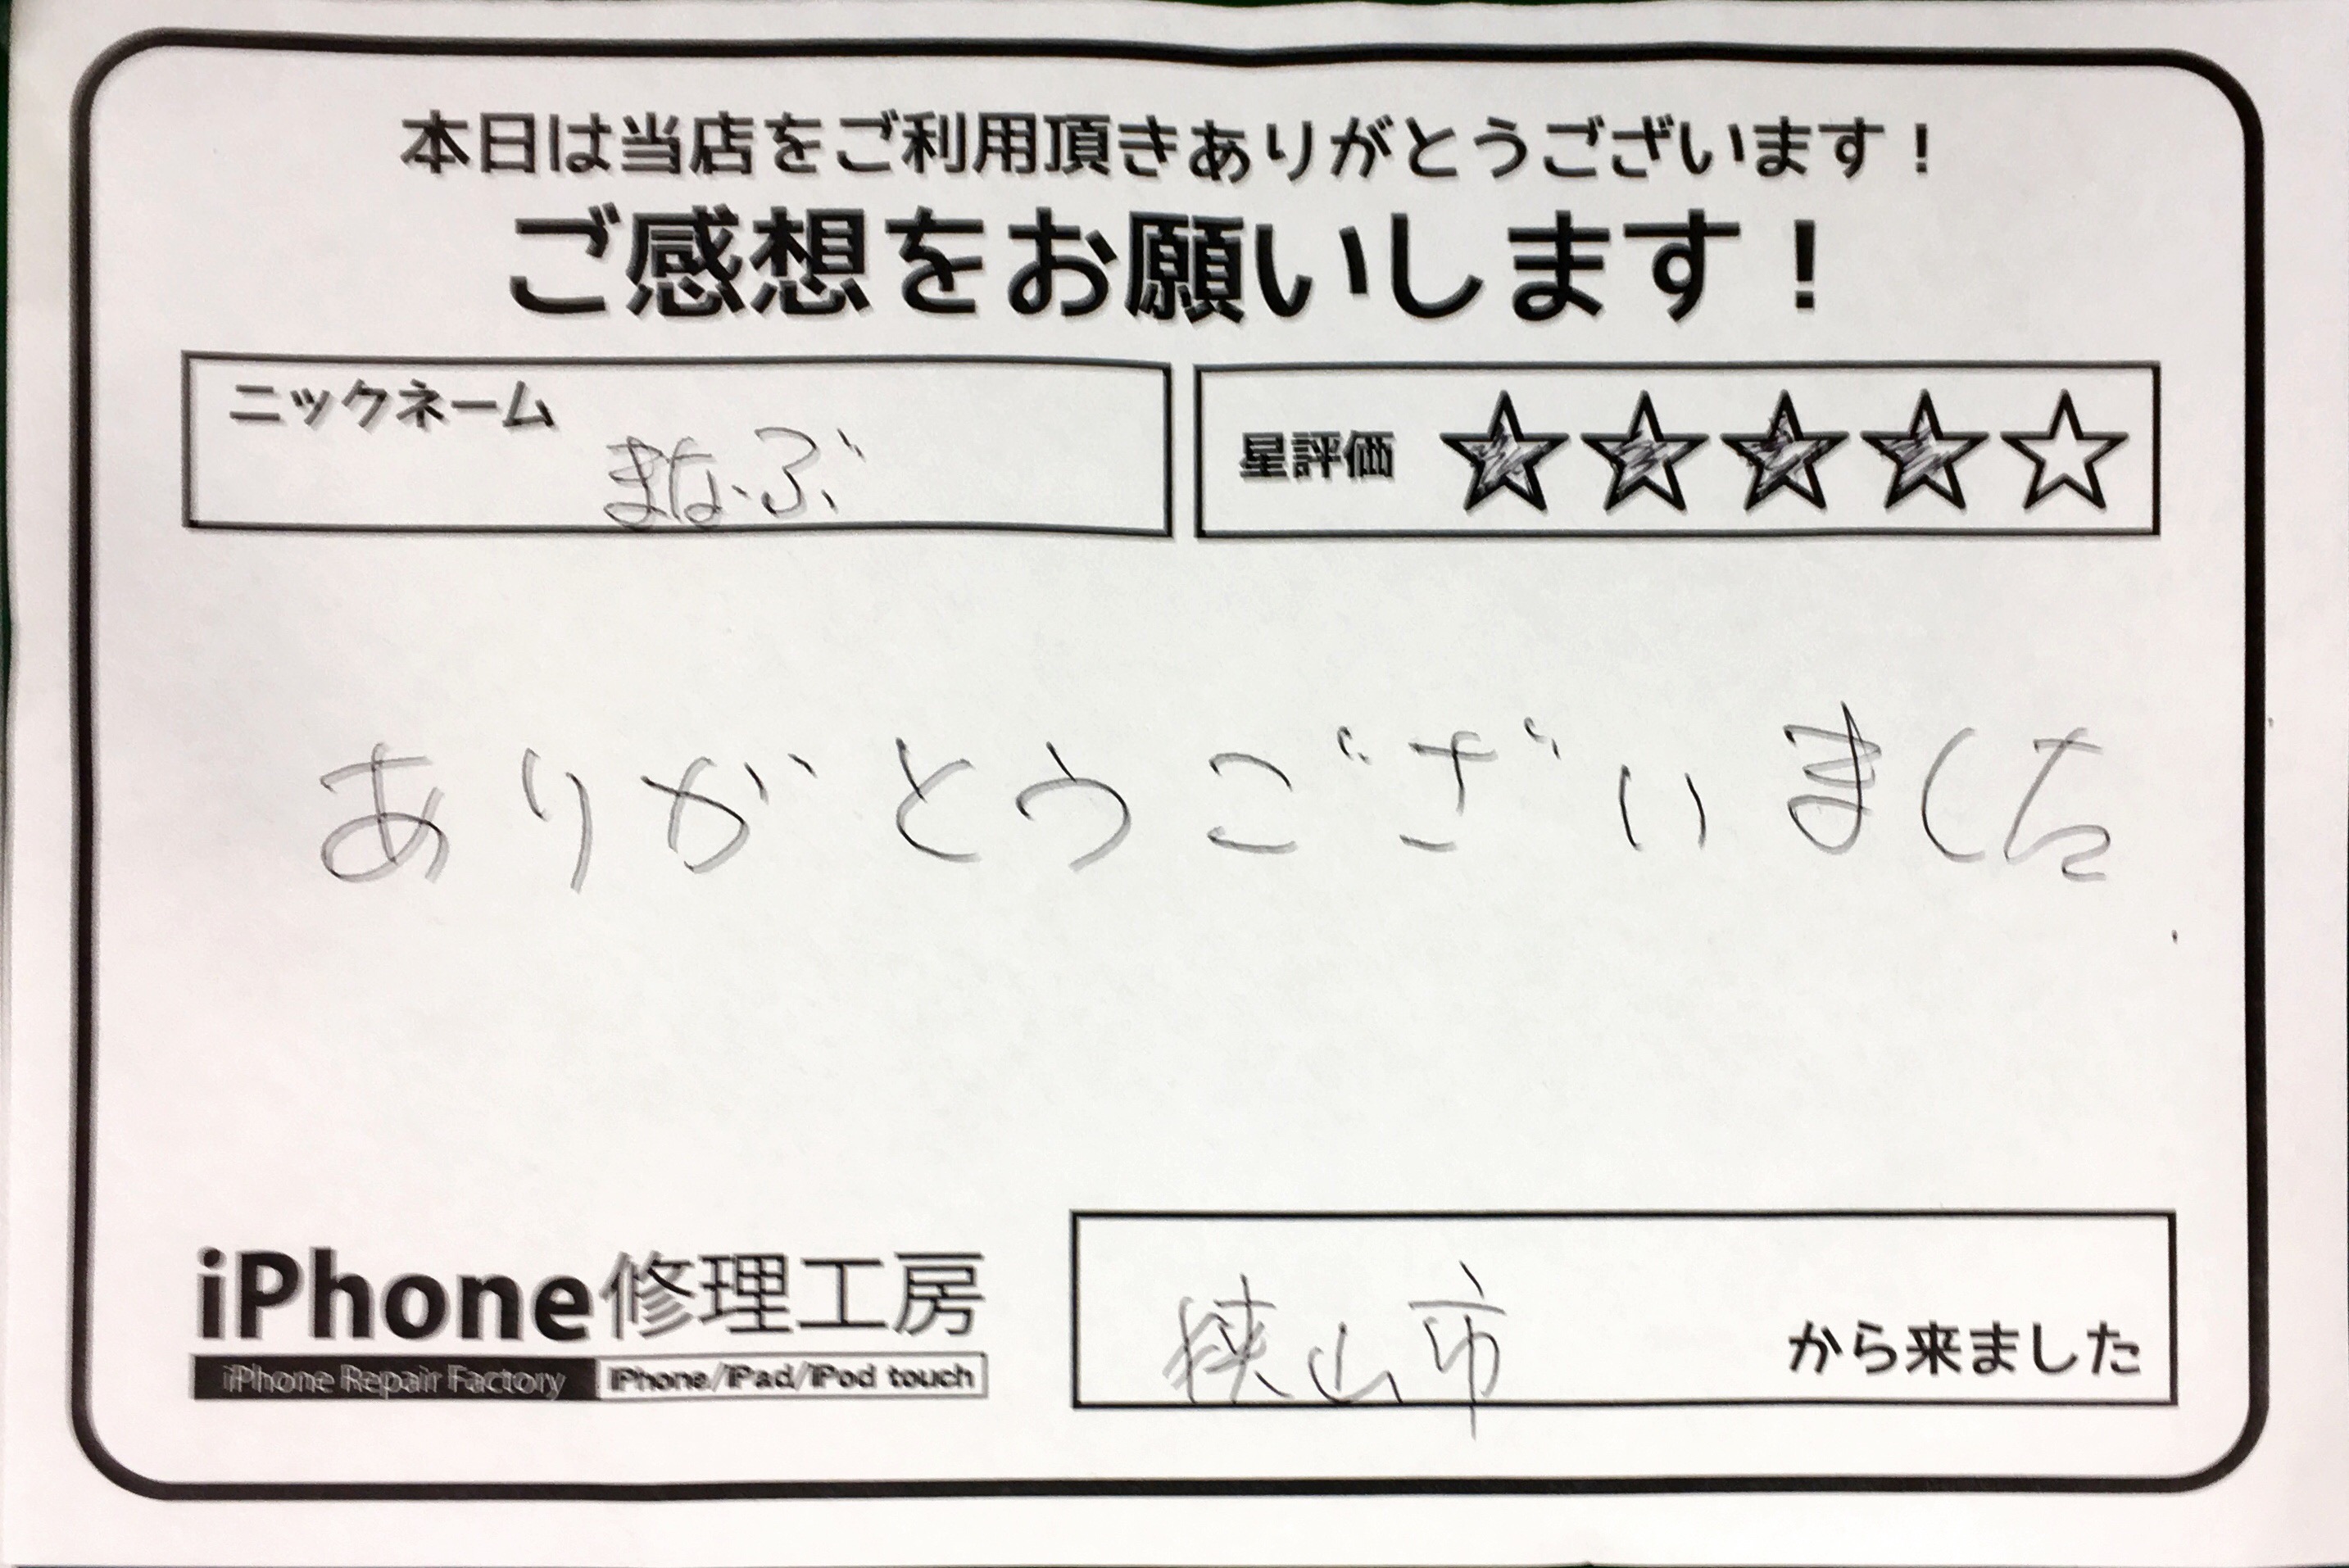 本日は当店をご利用頂きありがとうございます！
ご感想をお願いします！
ニックネーム
まなぶ
星評価 ★★★★☆
ありがとうございました
iPhone修理工房
iPhone Repair Factory iPhone/iPad/iPod touch
狭山市 から来ました